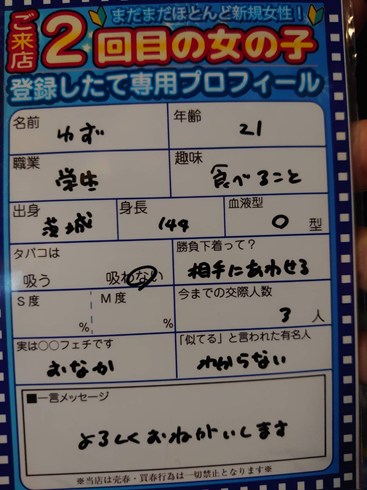 まだまだほとんど新規女性!
ご来店2回目の女の子
登録したて専用プロフィール
名前 ゆず
年齢 21
職業 学生
趣味 食べること
出身 茨城
身長 149
血液型 O 型
タバコは
吸う 吸わない
勝負下着って?
相手にあわせる
S度 %
M度 %
今までの交際人数
3 人
実は○○フェチです
おなか
「似てる」と言われた有名人
わからない
■一言メッセージ
よろしくおねがいします
※当店は売春・買春行為は一切禁止となります※